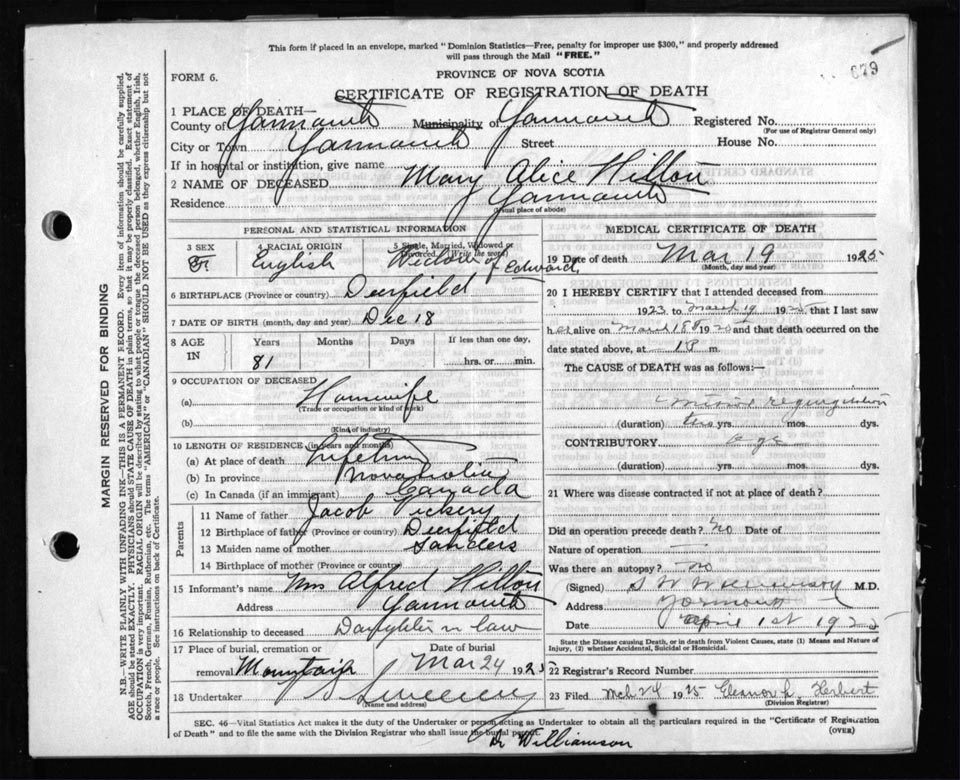 This form if placed in an envelope, marked "Dominion Statistics—Free, penalty for improper use $300," and properly addressed
will pass through the Mail "FREE."
FORM 6.
PROVINCE OF NOVA SCOTIA
679
CERTIFICATE OF REGISTRATION OF DEATH
1 PLACE OF DEATH—
County of Yarmouth Municipality of Yarmouth Registered No.
(For use of Registrar General only)
City or Town Yarmouth Street House No.
If in hospital or institution, give name
2 NAME OF DECEASED Mary Alice Hilton
Residence Yarmouth
(Usual place of abode)
PERSONAL AND STATISTICAL INFORMATION
3 SEX 4 RACIAL ORIGIN 5 Single, Married, Widowed or Divorced (Write the word)
F English Widow of Edward
6 BIRTHPLACE (Province or country) Deerfield
7 DATE OF BIRTH (month, day and year) Dec 18
8 AGE IN Years Months Days If less than one day,
81 hrs. or min.
9 OCCUPATION OF DECEASED
(a) Housewife
(Trade or occupation or kind of work)
(b)
(Kind of industry)
10 LENGTH OF RESIDENCE (in years and months)
(a) At place of death Lifetime
(b) In province Nova Scotia
(c) In Canada (if an immigrant) Canada
Parents
11 Name of father Jacob Vickery
12 Birthplace of father (Province or country) Deerfield
13 Maiden name of mother Sanders
14 Birthplace of mother (Province or country)
15 Informant's name Wm Alfred Hilton
Address Yarmouth
16 Relationship to deceased Daughter n law
17 Place of burial, cremation or Date of burial
removal Mountain Mar 24 1925
18 Undertaker
(Name and address)
MEDICAL CERTIFICATE OF DEATH
19 Date of death Mar 19 1925
(Month, day and year)
20 I HEREBY CERTIFY that I attended deceased from
1923 to March 19 1925 that I last saw
her alive on March 18 1925 and that death occurred on the
date stated above, at 1 P m.
The CAUSE of DEATH was as follows:—
mitral regurgitation
(duration) two yrs. mos. dys.
CONTRIBUTORY age
(duration) yrs. mos. dys.
21 Where was disease contracted if not at place of death?
Did an operation precede death? no Date of
Nature of operation
Was there an autopsy? no
(Signed) S W Williamson M.D.
Address Yarmouth
Date April 1st 1925
State the Disease causing Death, or in death from Violent Causes, state (1) Means and Nature of
Injury, (2) whether Accidental, Suicidal or Homicidal.
22 Registrar's Record Number
23 Filed Mch 24 1925 Eleanor L. Herbert
(Division Registrar)
SEC. 46—Vital Statistics Act makes it the duty of the Undertaker or person acting as Undertaker to obtain all the particulars required in the "Certificate of Registration
of Death" and to file the same with the Division Registrar who shall issue the burial permit. (OVER)
Dr Williamson
MARGIN RESERVED FOR BINDING
N.B.—WRITE PLAINLY WITH UNFADING INK—THIS IS A PERMANENT RECORD. Every item of information should be carefully supplied.
AGE should be stated EXACTLY. PHYSICIANS should STATE CAUSE OF DEATH in plain terms, so that it may be properly classified. Exact statement of
OCCUPATION is very important. RACIAL ORIGIN will be described by stating to what people or tongue the deceased person belonged, whether English, Irish,
Scotch, French, German, Russian, Ruthenian, etc. The terms "AMERICAN" or "CANADIAN" SHOULD NOT BE USED as they express citizenship but not
a race or people. See instructions on back of Certificate.